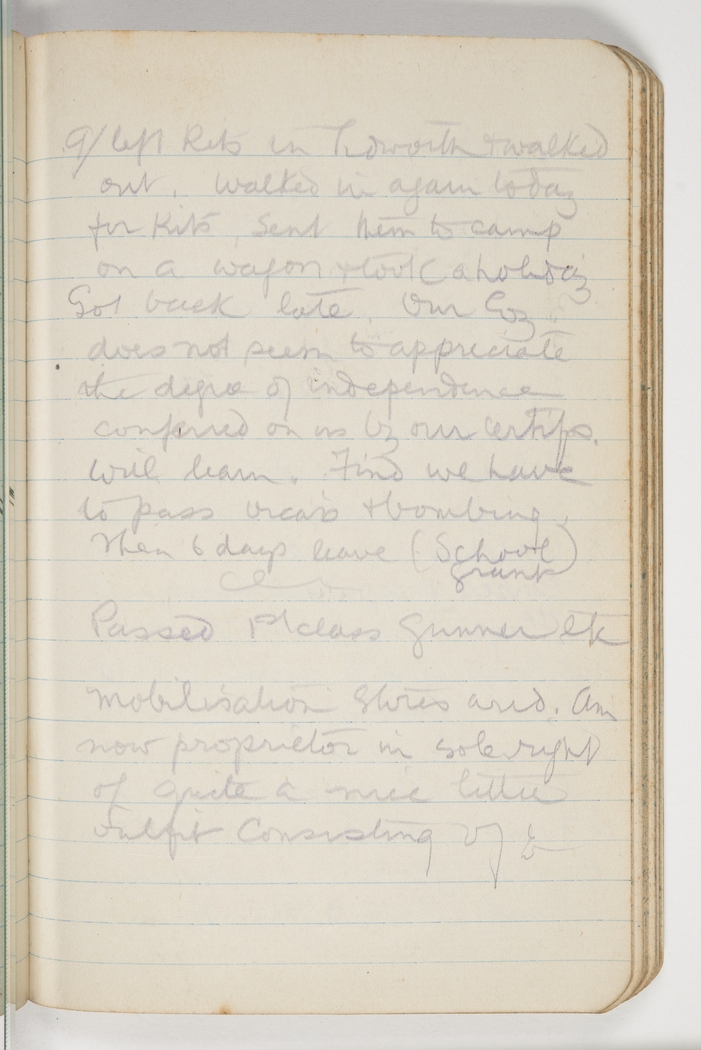 9/ left Kits in Tidworth & walked
out. Walked in again today
for Kits, Sent them to camp
on a wagon & took a holiday
Got back late. Our Coy.
does not seem to appreciate
the degree of independence
conferred on us by our certifs.
Will learn. Find we have
to pass Vicars & bombing.
Then 6 days leave (School)
grant
Passed 1st class Gunner etc
Mobilisation Stores arrd. Am
now proprietor in sole right
of quite a nice little
outfit Consisting of